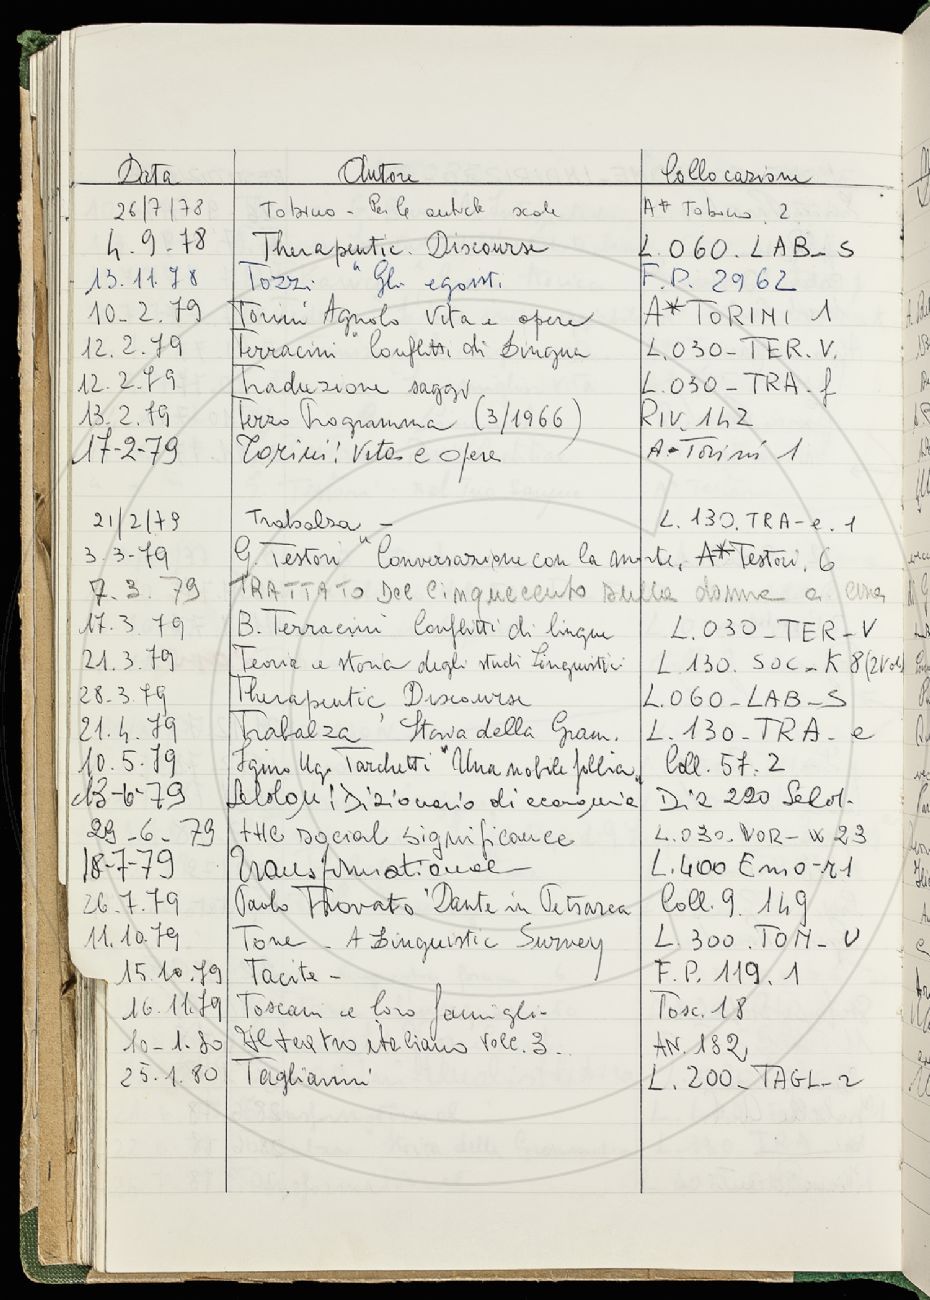 Data Autore Collocazione
26/7/78 Tobino - Per le antiche scale A* Tobino. 2.
4.9.78 Therapeutic. Discourse L.060.LAB-S
13.11.78 Tozzi "Gli egoisti F.P. 2962
10-2.79 Torini Agnolo Vita e opere A* TORINI 1
12.2.79 Terracini "Conflitti di Lingua L.030-TER.V.
12.2.79 Traduzione saggi L.030-TRA.f
13.2.79 Terzo Programma (3/1966) RIV.142
17-2-79 Torini: Vita e opere A*Torini 1
21/2/79 Trabalza - L.130.TRA-e.1
3.3-79 G. Testori "Conversazione con la morte, A*Testori, 6
7.3.79 TRATTATO Del Cinquecento sulla donna a cura
17.3.79 B. Terracini Conflitti di lingue L.030-TER-V
21.3.79 Teoria e storia degli studi Linguistici L 130. SOC-K 8(2Vol)
28.3.79 Therapeutic Discourse L.060-LAB-S
21.4.79 Trabalza' Storia della Gram. L.130-TRA-e
10.5.79 Igino Ugo Tarchetti "Una nobile follia" Coll. 57.2
13-6-79 Dizionario di economia Diz 220
29-6-79 the social significance L.030.VOR-W 23
18-7-79 Transformational L.400 Emo-r1
26.7.79 Paolo Trovato 'Dante in Petrarca Coll.9.149
11.10.79 Tone - A Linguistic Survey L.300.TON-V
15.10.79 Tacite - F.P. 119.1
16.11.79 Toscani e loro famigli- Tosc.18
10-1.80 Il teatro italiano voll.3.. AN.182
25.1.80 Tagliavini L.200-TAGL-2